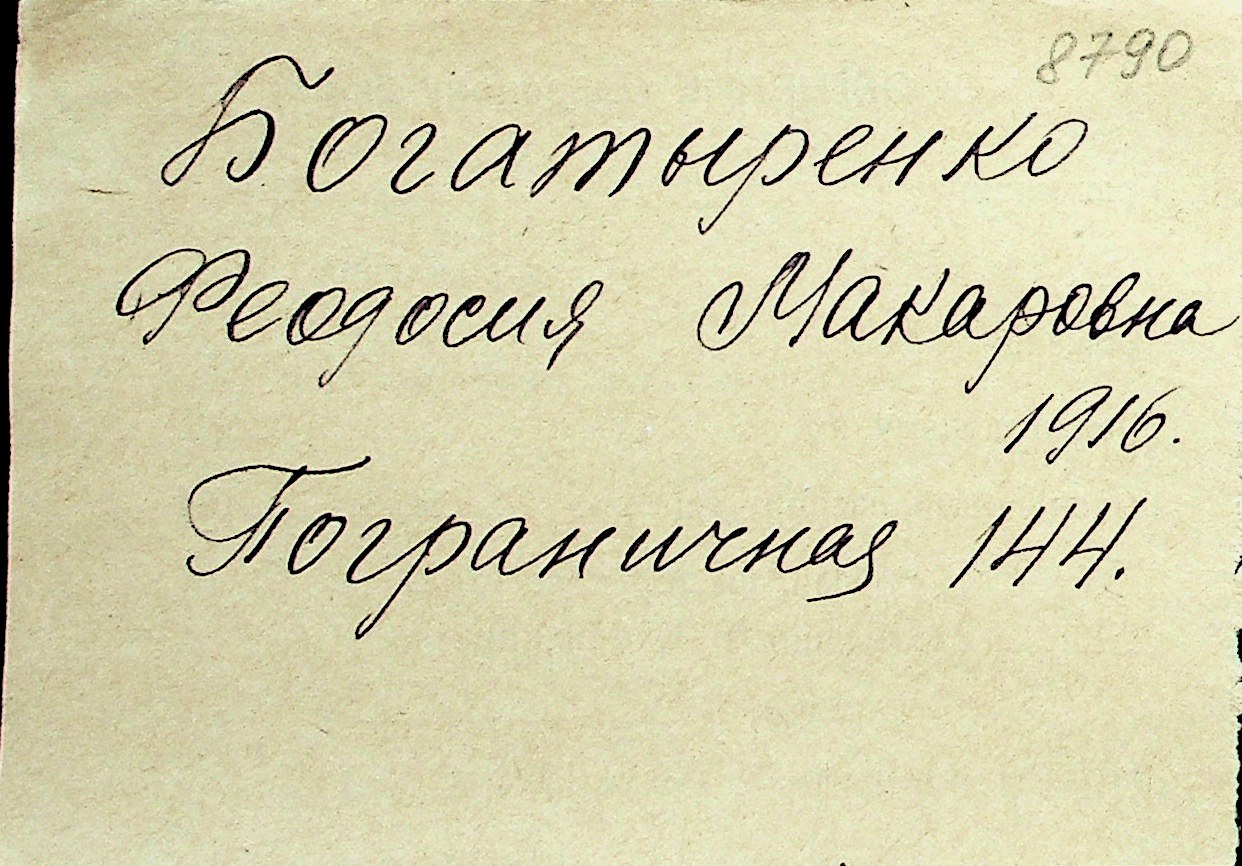 8790
Богатыренко
Феодосия Макаровна
1916.
Пограничная 144.